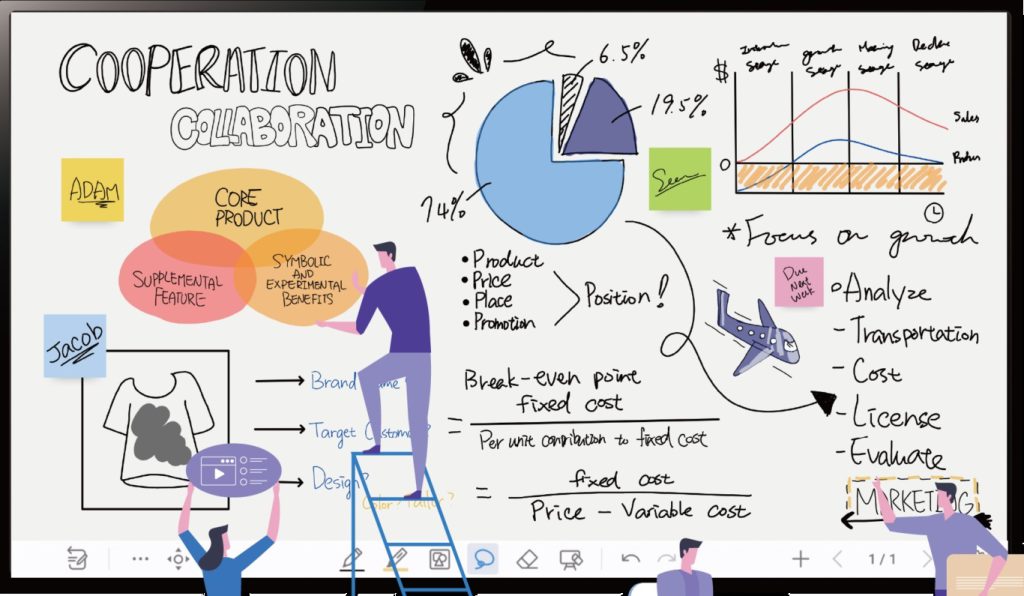 COOPERATION
COLLABORATION
ADAM
CORE
PRODUCT
SUPPLEMENTAL
FEATURE
SYMBOLIC
AND
EXPERIMENTAL
BENEFITS
Jacob
Brand
Target
Design?
6.5%
19.5%
74%
• Product
• Price
• Place
• Promotion
Position!
Break-even point
fixed cost
= Per unit contribution to fixed cost
= fixed cost
Price - Variable cost
$
Stage
growth Stage
Stage
Decline Stage
Sales
0
*Focus on growth
Due
Next
Week
Analyze
- Transportation
- Cost
- License
- Evaluate
MARKETING
1/1